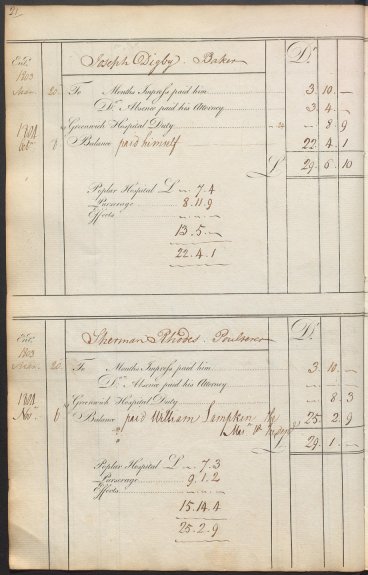 21
Joseph Digby Baker Dr
Entd
1803
20 To Months Imprest paid him 3. 10. —
Do Absence paid his Attorney 3. 4. —
Greenwich Hospital Duty — 8. 9
1804
7 Balance paid himself 22. 4. 1
£ 29. 6. 10
Poplar Hospital £ —. 7. 4
Purserage 8. 11. 9
Effects —. —. —
13. 5. —
22. 4. 1
Sherman Rhodes Poulterer Dr
Entd
1803
20 To Months Imprest paid him 3. 10. —
Do Absence paid his Attorney —. —. —
Greenwich Hospital Duty — 8. 3
1804
Novr 6 Balance paid William 25. 2. 9
£ 29. 1. —
Poplar Hospital £ —. 7. 3
Purserage 9. 1. 2
Effects —. —. —
15. 14. 4
25. 2. 9